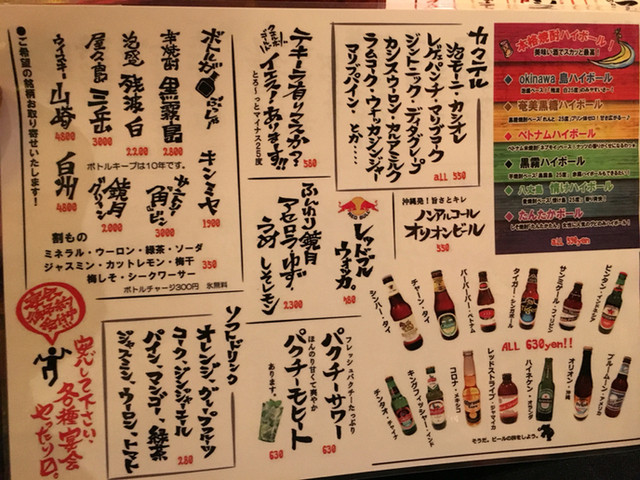 本格焼酎ハイボール!
美味い酒でスカッと最高!
◆ okinawa 島ハイボール
◆ 奄美黒糖ハイボール
◆ ベトナムハイボール
◆ 黒霧ハイボール
◆ 八丈島 情けハイボール
◆ たんたかボール
all 550yen
カクテル
レゲエパンチ・マリブコーク
ジントニック・ディタグレープ
カシスウーロン・カルアミルク
ラムコーク・ウォッカジンジャー
マリブパイン・とか…
all 550
沖縄発!旨さとキレ
ノンアルコール
オリオンビール
550
テキーラ有りマスか?
イエス!あります!!
とろ〜っとマイナス25度
580
レッドブル
ウォッカ。
760
ふんわり鏡月
アセロラ、ゆず、
うめ しそレモン
2300
ボトルがいっぱい
芋焼酎 黒霧島 2800
泡盛 残波 白 2200
屋久島 三岳 3000
ウイスキー 山崎 4800
白州 4800
キンミヤ 1900
角ビン 3000
鏡月グリーン 2000
ボトルキープは10年です。
割もの
ミネラル・ウーロン・緑茶・ソーダ
ジャスミン・カットレモン・梅干
梅しそ・シークワーサー
350
ボトルチャージ300円 氷無料
●ご希望の銘柄お取り寄せいたします!
安心して下さい、
各種宴会
やったり口。
ソフトドリンク
オレンジ、グレープフルーツ
コーク・ジンジャーエール
パイン、マンゴー、緑茶
ジャスミン、ウーロン、トマト
280
フレッシュパクチーたっぷり
パクチーサワー
630
ほんのり甘くて爽やか
パクチーモヒート
あります。
630
シンハー・タイ
チャーン・タイ
バーバーバー・ベトナム
タイガー・シンガポール
サンミゲール・フィリピン
ビンタン・インドネシア
ALL 630yen!!
チンタオ・チャイナ
キングフィッシャー・インド
コロナ・メキシコ
レッドストライプ・ジャマイカ
ハイネケン・オランダ
オリオン・沖縄
ブルームーン・アメリカ
そうだ。ビールの旅をしよう。